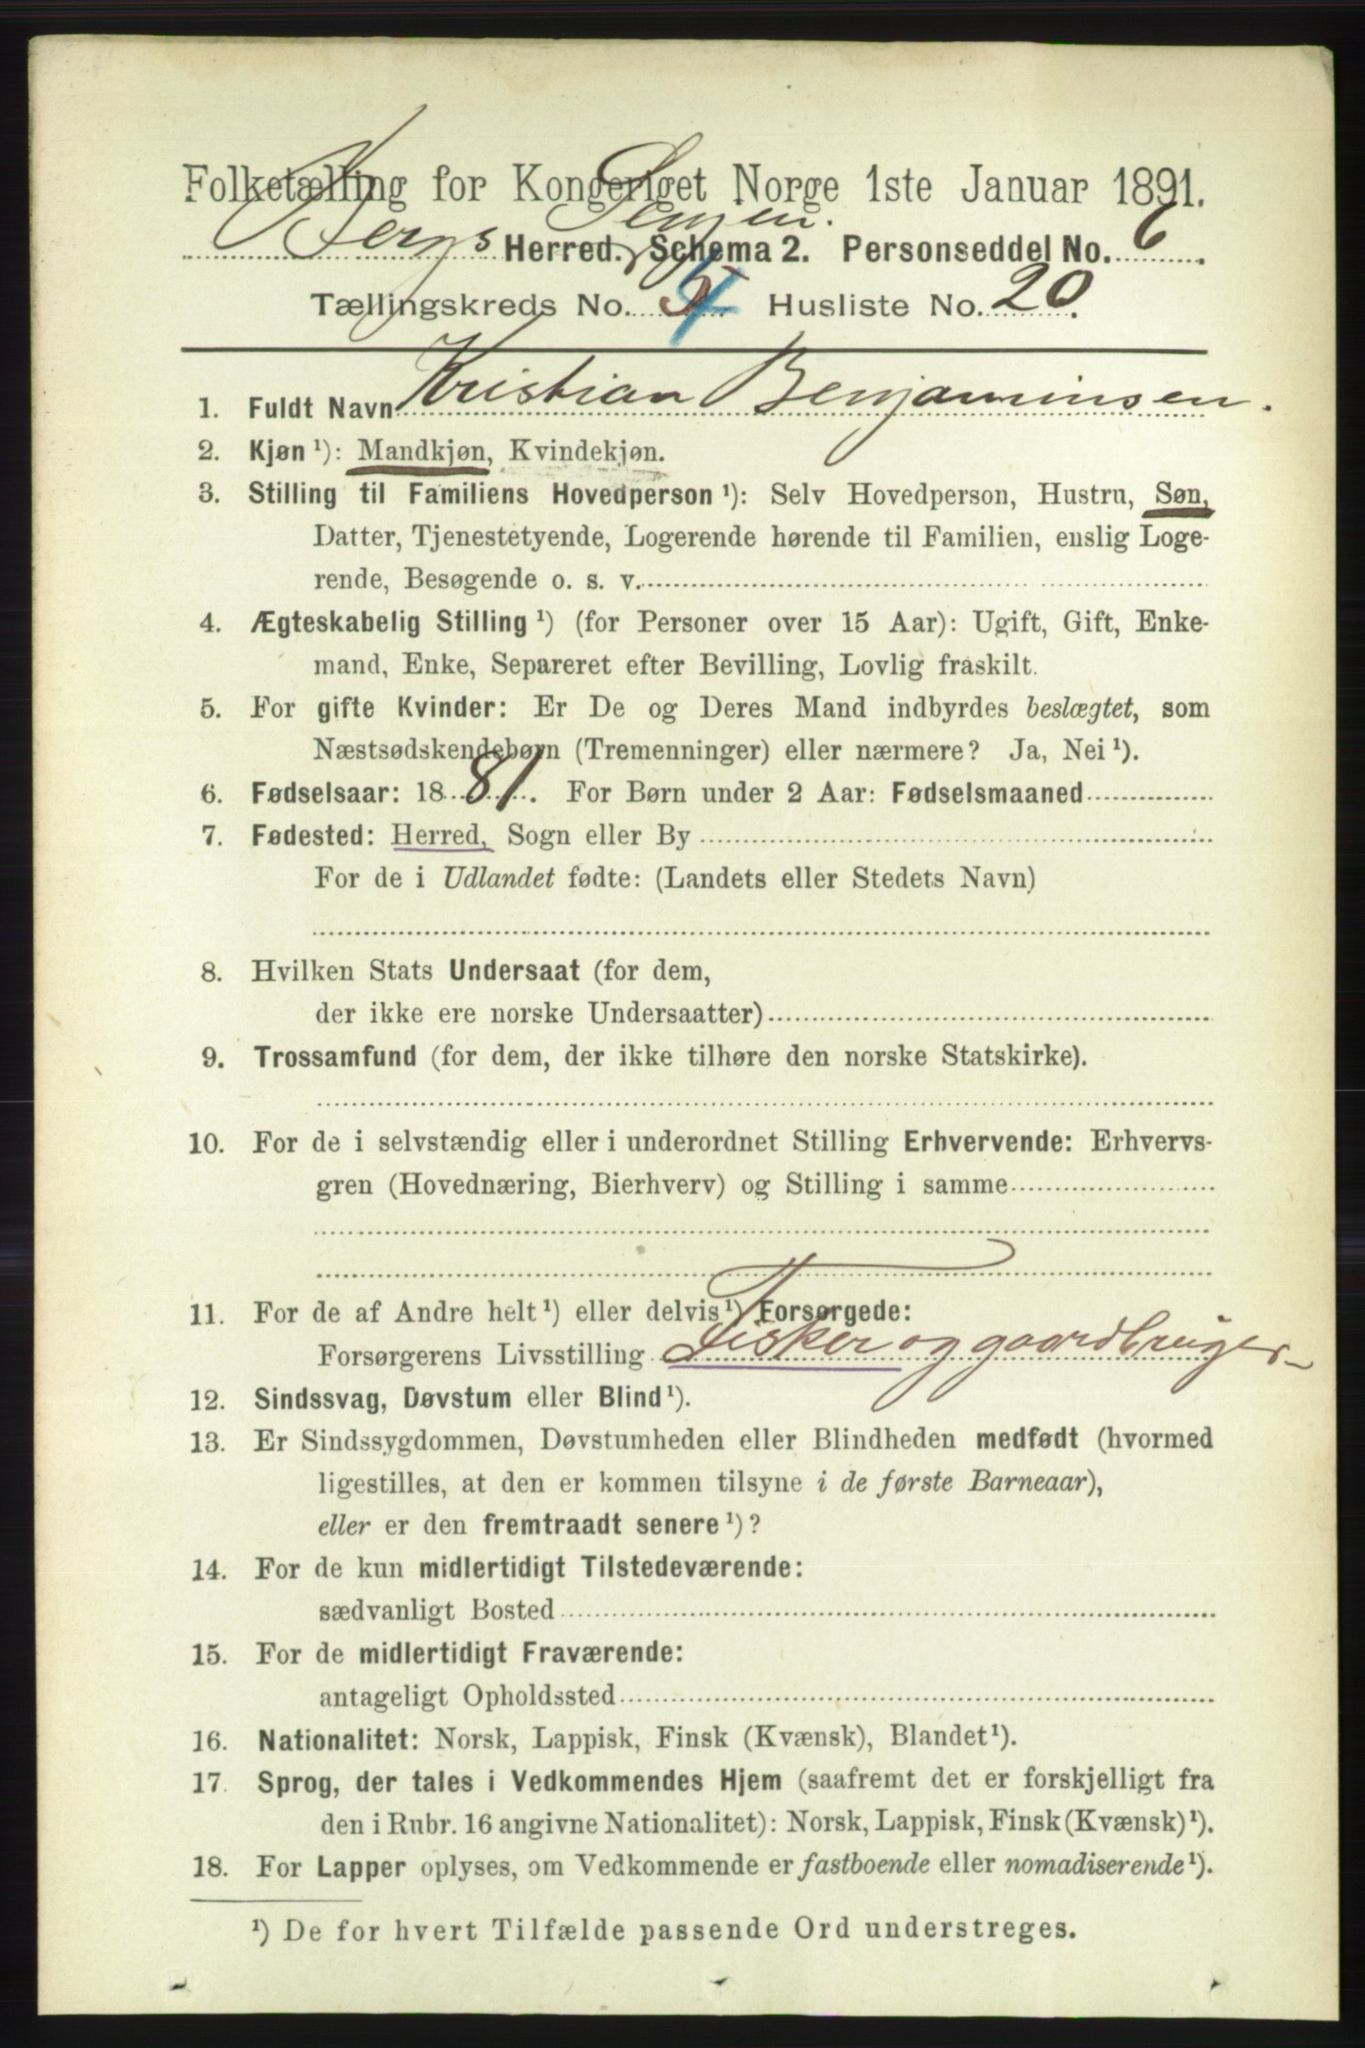 Folketælling for Kongeriget Norge 1ste Januar 1891.
Bergs Senjen. Herred. Schema 2. Personseddel No. 6.
Tællingskreds No. 4 Husliste No. 20.
1. Fuldt Navn Kristian Benjaminsen.
2. Kjøn ¹): Mandkjøn, Kvindekjøn.
3. Stilling til Familiens Hovedperson ¹): Selv Hovedperson, Hustru, Søn,
Datter, Tjenestetyende, Logerende hørende til Familien, enslig Loge-
rende, Besøgende o. s. v.
4. Ægteskabelig Stilling ¹) (for Personer over 15 Aar): Ugift, Gift, Enke-
mand, Enke, Separeret efter Bevilling, Lovlig fraskilt.
5. For gifte Kvinder: Er De og Deres Mand indbyrdes beslægtet, som
Næstsødskendebørn (Tremenninger) eller nærmere? Ja, Nei ¹).
6. Fødselsaar: 1881. For Børn under 2 Aar: Fødselsmaaned
7. Fødested: Herred, Sogn eller By
For de i Udlandet fødte: (Landets eller Stedets Navn)
8. Hvilken Stats Undersaat (for dem,
der ikke ere norske Undersaatter)
9. Trossamfund (for dem, der ikke tilhøre den norske Statskirke).
10. For de i selvstændig eller i underordnet Stilling Erhvervende: Erhvervs-
gren (Hovednæring, Bierhverv) og Stilling i samme
11. For de af Andre helt ¹) eller delvis ¹) Forsørgede:
Forsørgerens Livsstilling Fisker og gaardbruger
12. Sindssvag, Døvstum eller Blind ¹).
13. Er Sindssygdommen, Døvstumheden eller Blindheden medfødt (hvormed
ligestilles, at den er kommen tilsyne i de første Barneaar),
eller er den fremtraadt senere ¹)?
14. For de kun midlertidigt Tilstedeværende:
sædvanligt Bosted
15. For de midlertidigt Fraværende:
antageligt Opholdssted
16. Nationalitet: Norsk, Lappisk, Finsk (Kvænsk), Blandet ¹).
17. Sprog, der tales i Vedkommendes Hjem (saafremt det er forskjelligt fra
den i Rubr. 16 angivne Nationalitet): Norsk, Lappisk, Finsk (Kvænsk) ¹).
18. For Lapper oplyses, om Vedkommende er fastboende eller nomadiserende ¹).
¹) De for hvert Tilfælde passende Ord understreges.